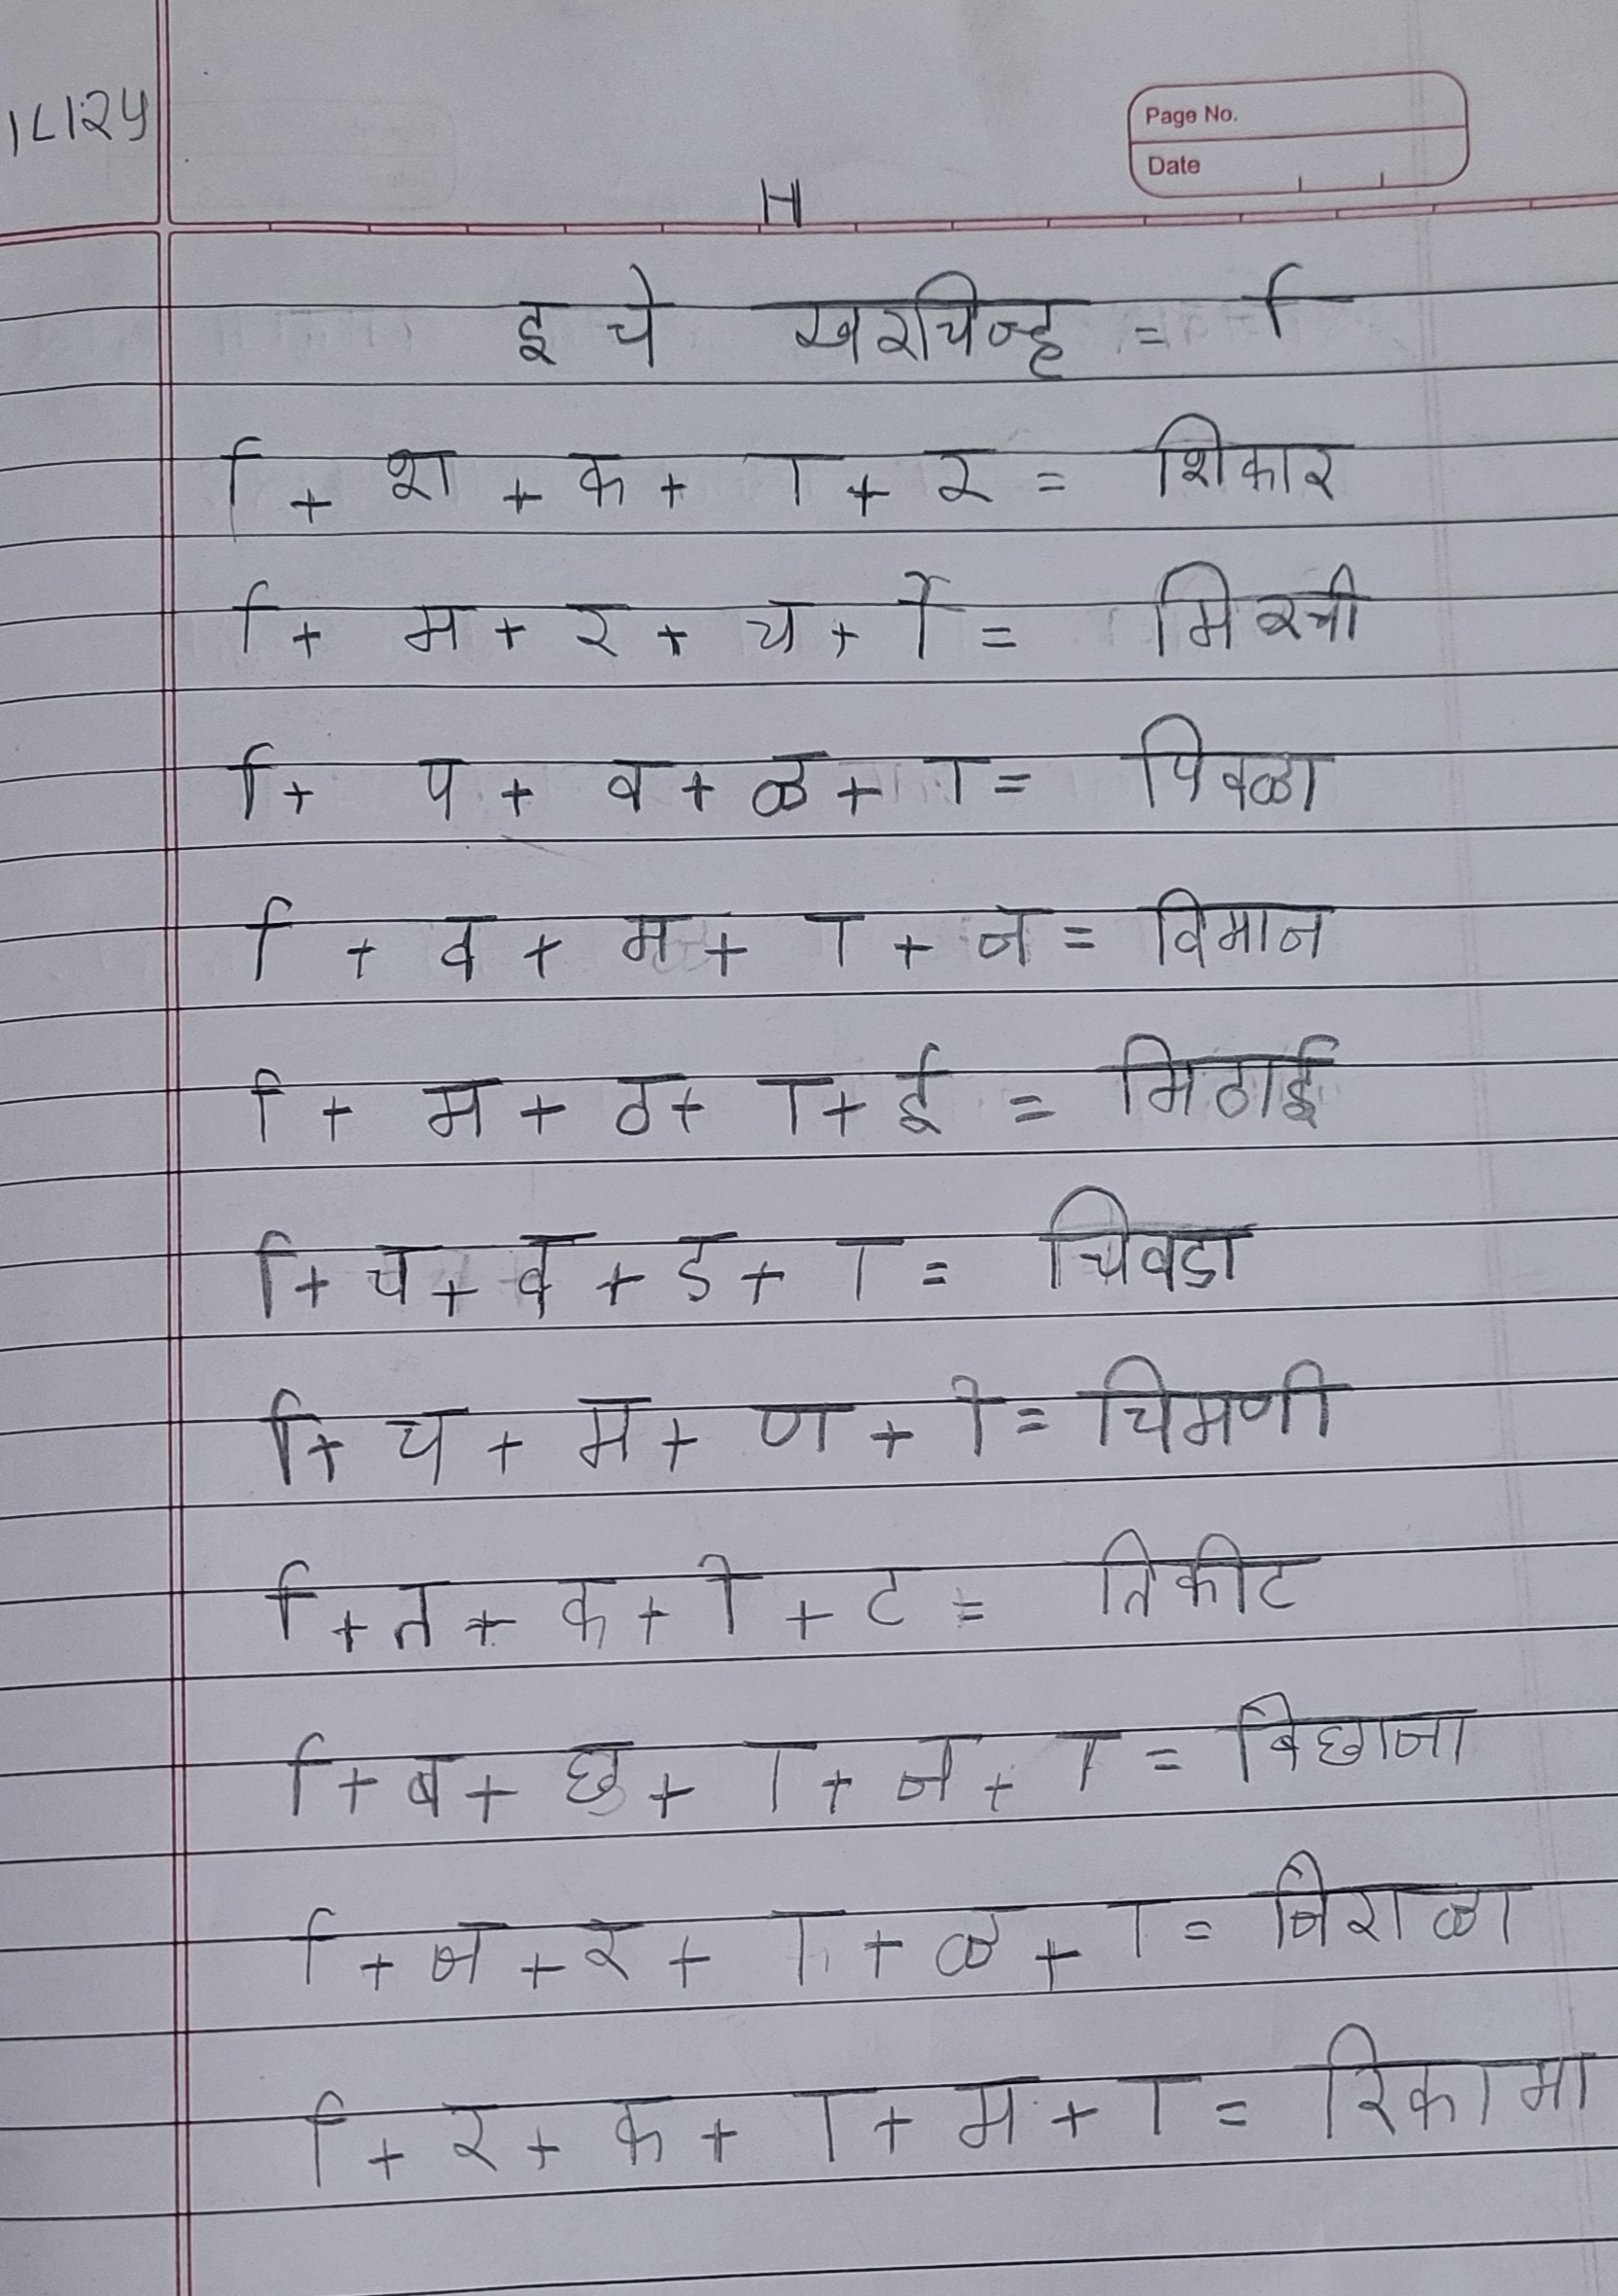 ।८।२५
Page No.
Date
H
इ चे स्वरचिन्ह = ि
ि + श + क + ा + र = शिकार
ि + म + र + च + ी = मिरची
ि + प + व + ळ + ा = पिवळा
ि + व + म + ा + न = विमान
ि + म + ठ + ा + ई = मिठाई
ि + च + व + ड + ा = चिवडा
ि + च + म + ण + ी = चिमणी
ि + त + क + ी + ट = तिकीट
ि + ब + छ + ा + न + ा = बिछाना
ि + न + र + ा + ळ + ा = निराळा
ि + र + क + ा + म + ा = रिकामा